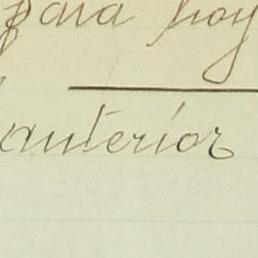 para hoy
anterior